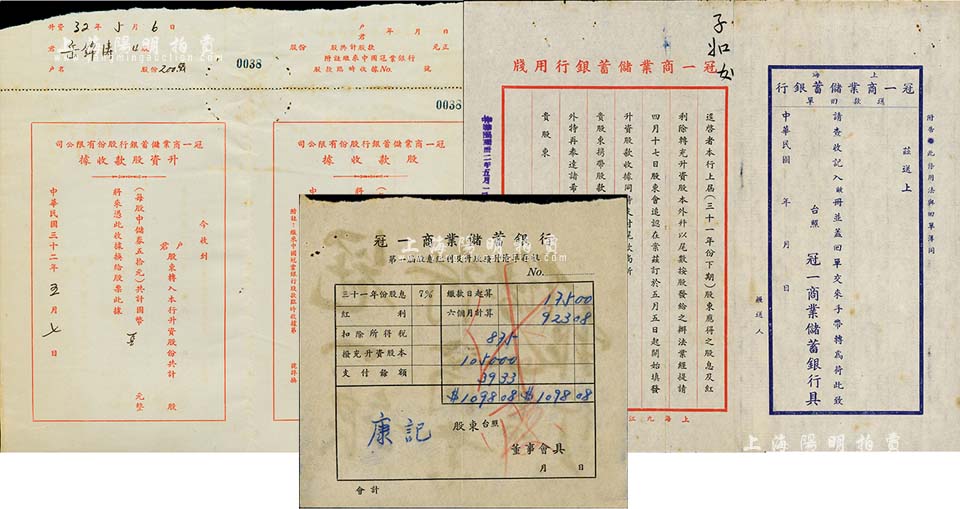 升資 32 年 5 月 6 日
戶名
股份 200股
0038
戶
君
年 月 日
股份
股 款股計共
元正
附註繳來中國冠業銀行
股款臨時收據No. 號
0038
冠一商業儲蓄銀行股份有限公司
升資股款收據
今收到
戶
君
股東轉入本行升資股份共計
股
(每股中儲券五拾元)共計國幣
元整
將來憑此收據換給股票此據
中華民國三十二年 五 月 七 日
冠一商業儲蓄銀行股份有限公司
股款收據
附註：繳來中國冠業銀行股款臨時收據第 號註換
冠一商業儲蓄銀行用牋
逕啓者本行上屆(三十一年份下期)股東應得之股息及紅
利除轉充升資股本外幷以尾數按股發給之辦法業經提請
四月十七日股東會追認在案茲訂於五月五日起開始填發
升資股款收據同時
貴股東攜帶股款
外特再奉達請希
貴股東
上海九江
上海
冠一商業儲蓄銀行
送款回單
茲送上
請查收記入該冊並蓋回單交來手帶轉爲荷此致
台照
冠一商業儲蓄銀行具
中華民國 年 月 日
經送人
冠一商業儲蓄銀行
No.
三十一年份股息 7% 繳款日起算 17500
紅利 六個月計算 92308
扣除所得稅 875
撥充升資股本 105000
支付餘額 3933
$109808 $109808
康記
股東 台照
董事會具
月 日
會計
上海陽明拍賣
上海陽明拍賣
上海陽明拍賣